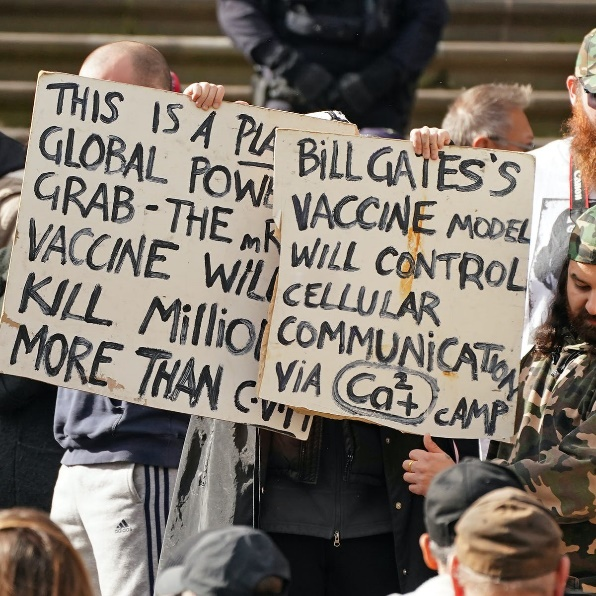 THIS IS A
GLOBAL
GRAB-THE
VACCINE
KILL
MORE THAN
BILL GATES'S
VACCINE MODEL
WILL CONTROL
CELLULAR
COMMUNICATION
VIA Ca2+ CAMP
adidas